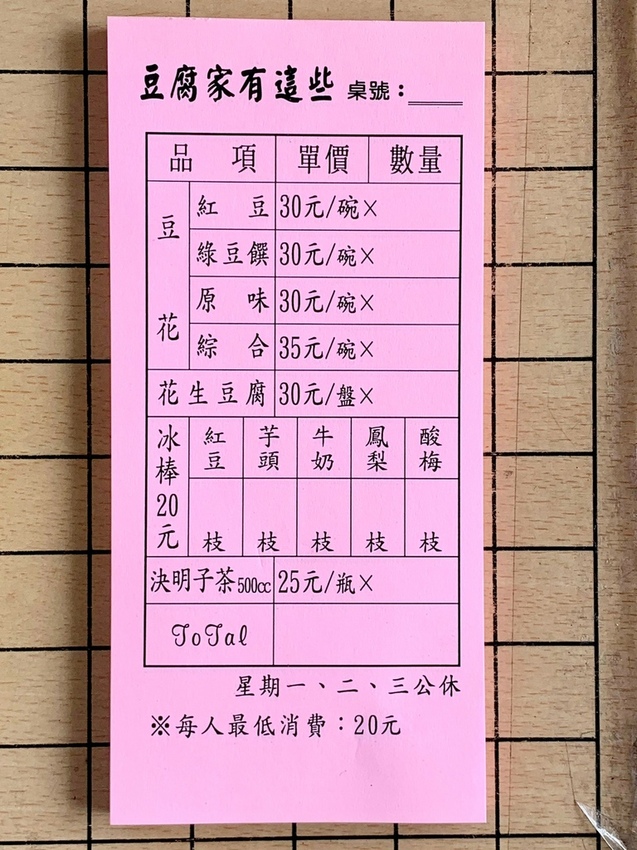 豆腐家有這些 桌號：
品項 單價 數量
豆花
紅豆 30元/碗×
綠豆饌 30元/碗×
原味 30元/碗×
綜合 35元/碗×
花生豆腐 30元/盤×
冰棒20元
紅豆 芋頭 牛奶 鳳梨 酸梅
枝 枝 枝 枝 枝
決明子茶500cc 25元/瓶×
ToTal
星期一、二、三公休
※每人最低消費：20元